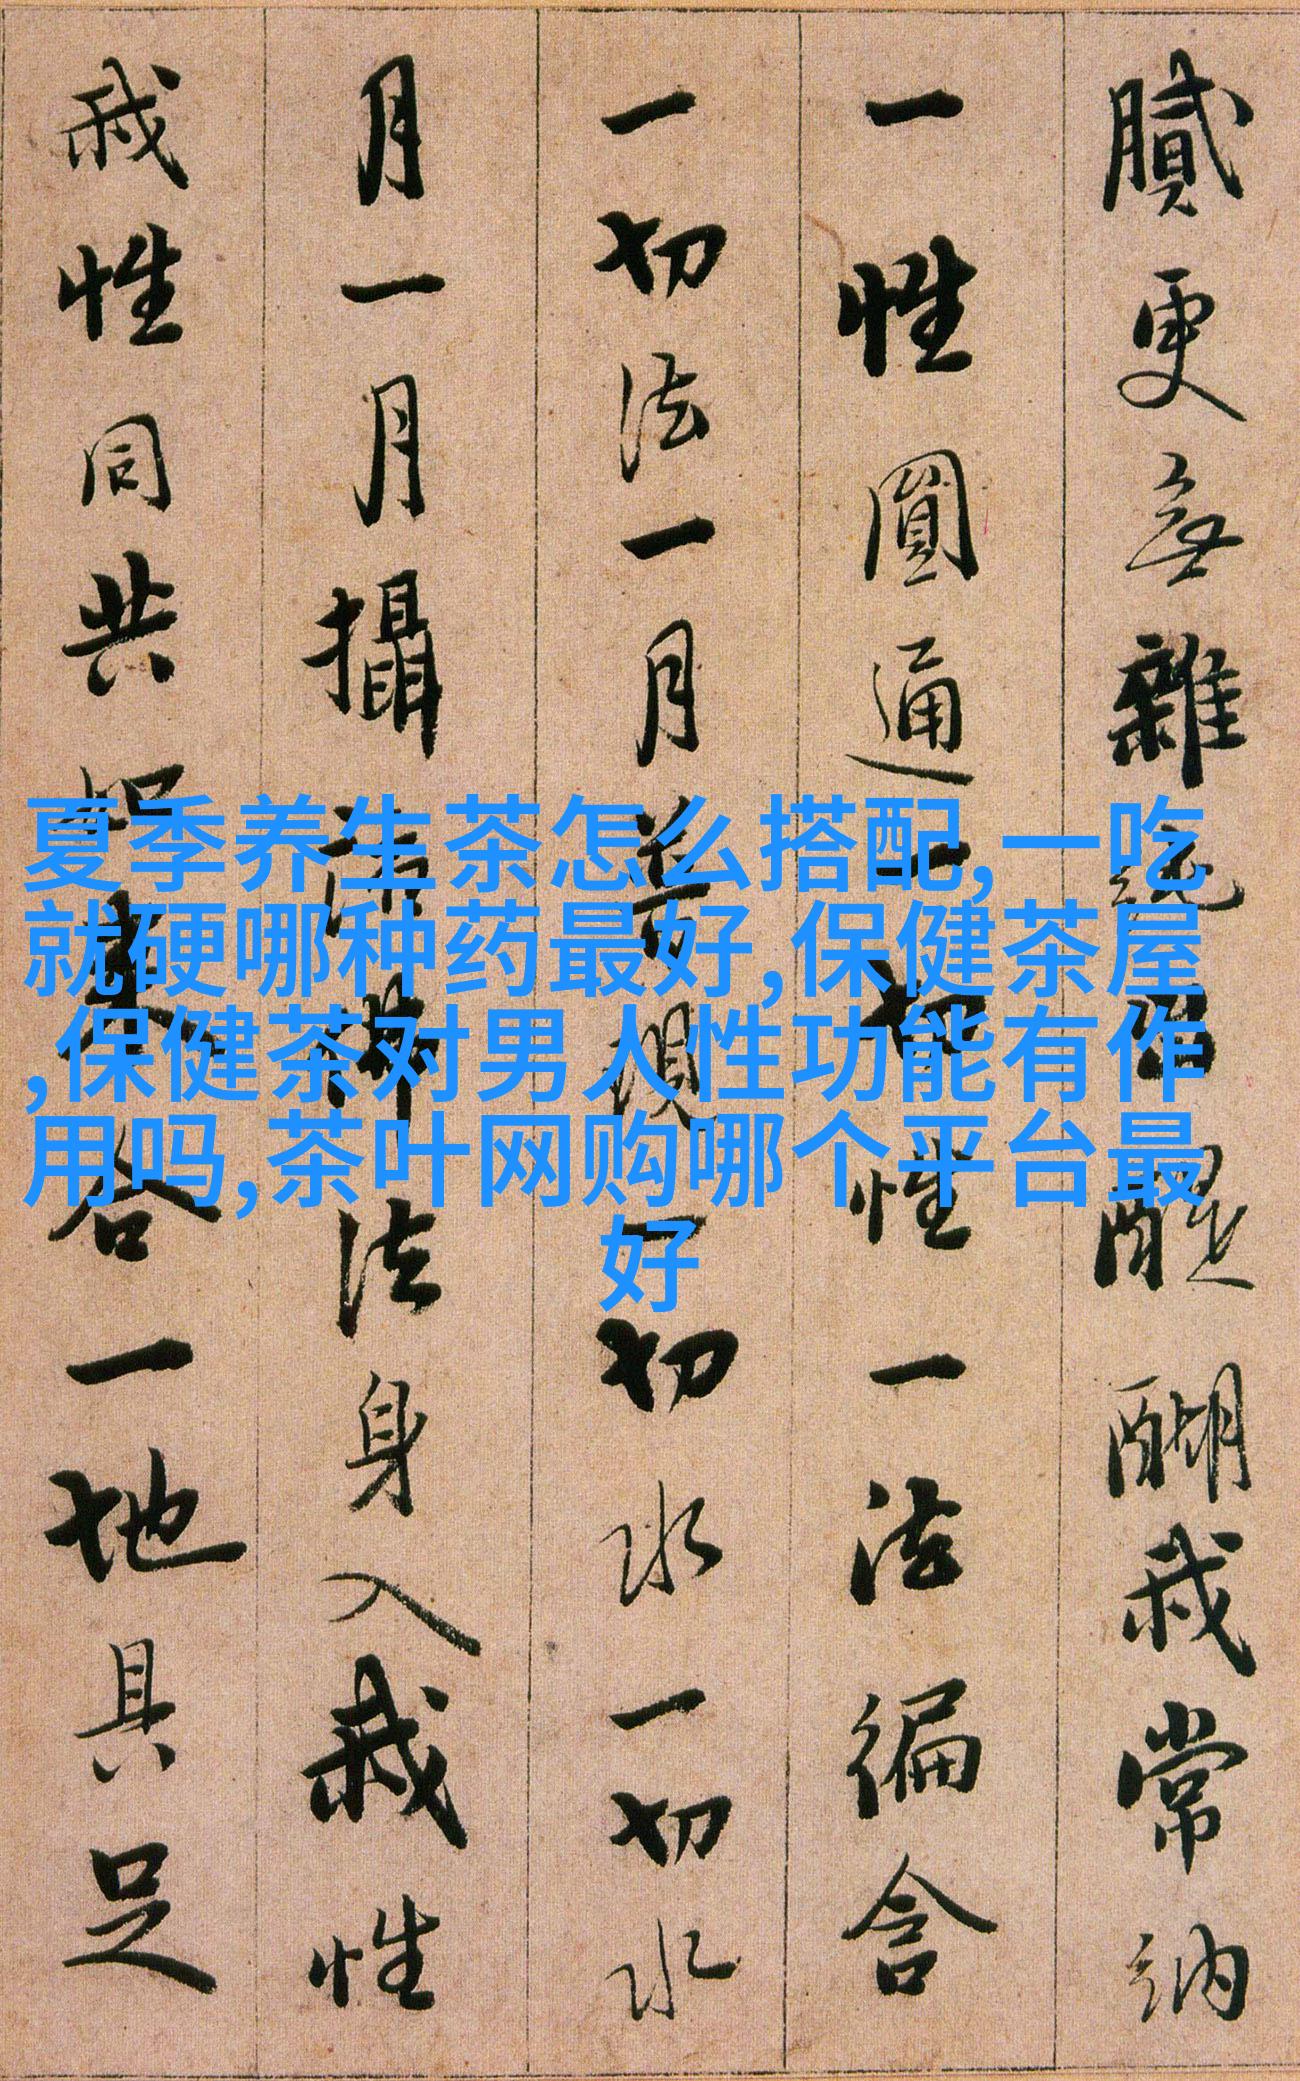 膩更無雜純曰醍醐我常納
一性圓通一切性一法徧含
一切法一月普現一切水一切水
月一月攝諸佛法身入我性
我性同共如來合一地具足
夏季养生茶怎么搭配,一吃
就硬哪种药最好,保健茶屋
,保健茶对男人性功能有作
用吗,茶叶网购哪个平台最
好